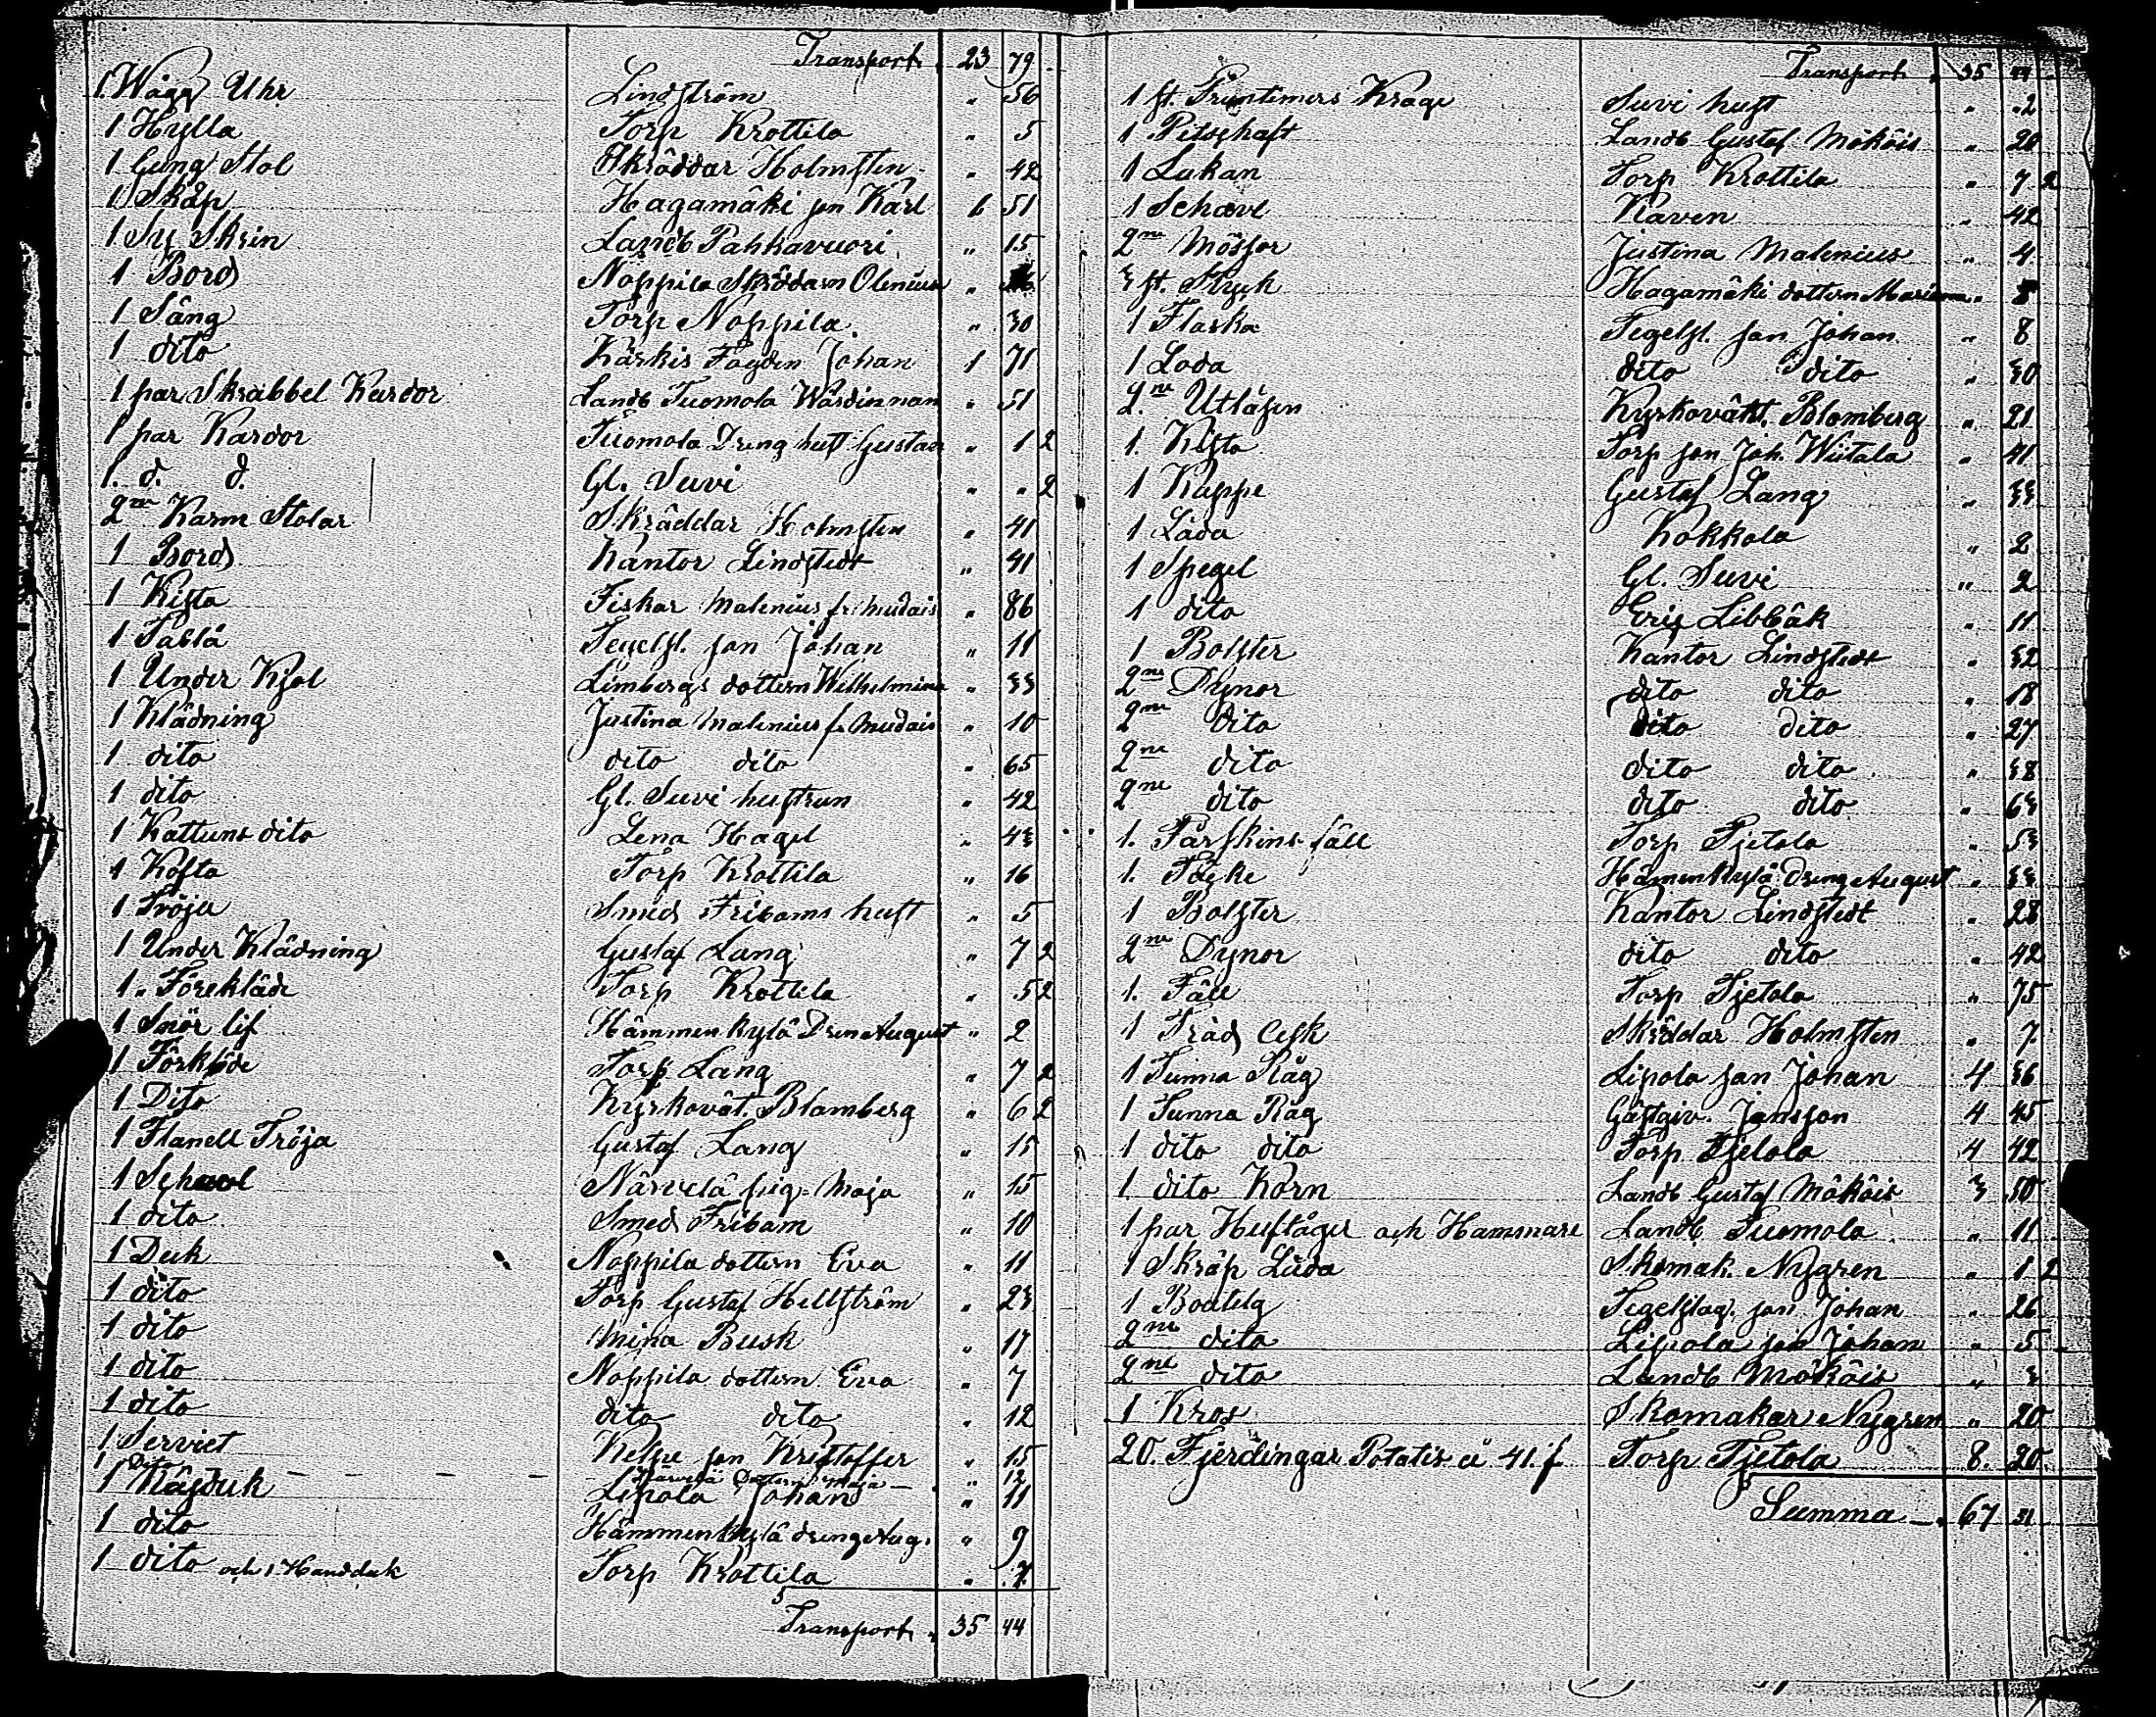 Transport . 23 79
1. Wägg Uhr Lindström " 56
1 Hylla Torp Krottila " 5
1 Gung Stol Skräddar Holmsten " 42
1 Skåp Hagamäki son Karl 6 51
1 Sy Skrin Landb Pahkavuori " 15
1 Bord Noppila Skräddarn Olenius "
1 Säng Torp Noppila " 30
1 dito Kärkis Fogden Johan 1 71
1 par Skrabbel Kardor Landb Tuomola Wärdinnan " 51
1 par Kardor Tuomola Dreng hust Gustava " 1 2
1. d. d. Gl. Suvi " " 2
2ne Karm Stolar Skräddar Holmsten " 41
1 Bord Kantor Lindstedt " 41
1 Kista Fiskar Malenius fr. Mudais " 86
1 Taflå Tegelsl. son Johan " 11
1 Under Kjol Limbergs dottern Wilhelmina " 33
1 Klädning Justina Malenius fr Mudais " 10
1 dito dito dito " 65
1 dito Gl. Suvi hustrun " 42
1 Kattuns dito Lena Hagel " 43
1 Kofta Torp Krottila " 16
1 Tröja Smed Friboms hust " 5
1 Under Klädning Gustaf Lang " 7 2
1. Förekläde Torp Krottila " 5 2
1 Snör lif Hämmenkylä Dren August " 2
1 Förkläde Torp Lang " 7 2
1 Dito Kyrkovät. Blomberg " 6 2
1 Flanell Tröja Gustaf Lang " 15
1 Schavl Närvelä pig. Maja " 15
1 dito Smed Fribom " 10
1 Duk Noppila dottern Eva " 11
1 dito Torp Gustaf Hellström " 23
1 dito Mina Busk " 17
1 dito Noppila dottern Eva " 7
1 dito dito dito " 12
1 Serviet Kelpu son Kristoffer " 15
1 Dito — — — Närvelä Dottern Maja — " 12
1 Näsduk Lipola Johan " 11
1 dito Hämmenkylä dreng Aug. " 9
1 dito och 1 Handduk Torp Krottila " 7
Transport . 35 44
Transport . 35 44
1 st. Fruntimers Krage Suvi hust " "2
1 Pitschaft Landb Gustaf Mököis " 20
1 Lukan Torp Krottila " 7 2
1 Schavl Kaven " 42
2ne Mössor Justina Malenius " 4
3 st. Stryk Hagamäki dottern " 8
1 Flaska Tegelsl. son Johan " 8
1 Låda dito dito " 30
2ne Utlåsen Kyrkoväkt. Blomberg " 21
1. Kista Torp son Joh. Wiitala " 41
1 Kappe Gustaf Lang " 33
1 Låda Kokkola " 2
1 Spegel Gl. Suvi " 2
1 dito Eric Libbäk " 11
1 Bolster Kantor Lindstedt " 32
2ne Dynor dito dito " 18
2ne dito dito dito " 27
2ne dito dito dito " 38
2ne dito dito dito " 63
1. Fårskins fäll Torp Tjetola " 53
1. Täcke Hämenkylä Dreng August " 33
1 Bolster Kantor Lindstedt " 28
2ne Dynor dito dito " 42
1. Fäll Torp Tjetola " 75
1 Träd Ask Skräddar Holmsten " 7
1 Tunna Råg Lipola son Johan 4 36
1 Tunna Råg Gästgiv. Jansson 4 45
1 dito dito Torp Tjetola 4 42
1. dito Korn Landb Gustaf Mököis 3 50
1 par Huftåger och Hammare Landb. Tuomola " 11
1 Skräp Låda Skomak. Nygren " 1 2
1 Boutelg Tegelslag. son Johan " 26
2ne dito Lipola son Johan " 5
2ne dito Landb Mököis " 3
1 Kros Skomakar Nygren " 20
20. Fjerdingar Potatis á 41. f Torp Tjetola 8. 20
Summa — . 67 31